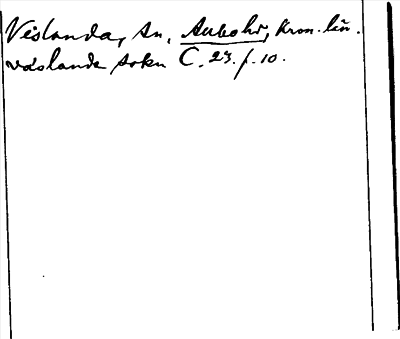 Vislanda, sn, Aubohr, Kron. län.
väslanda sokn C. 23. f. 10.